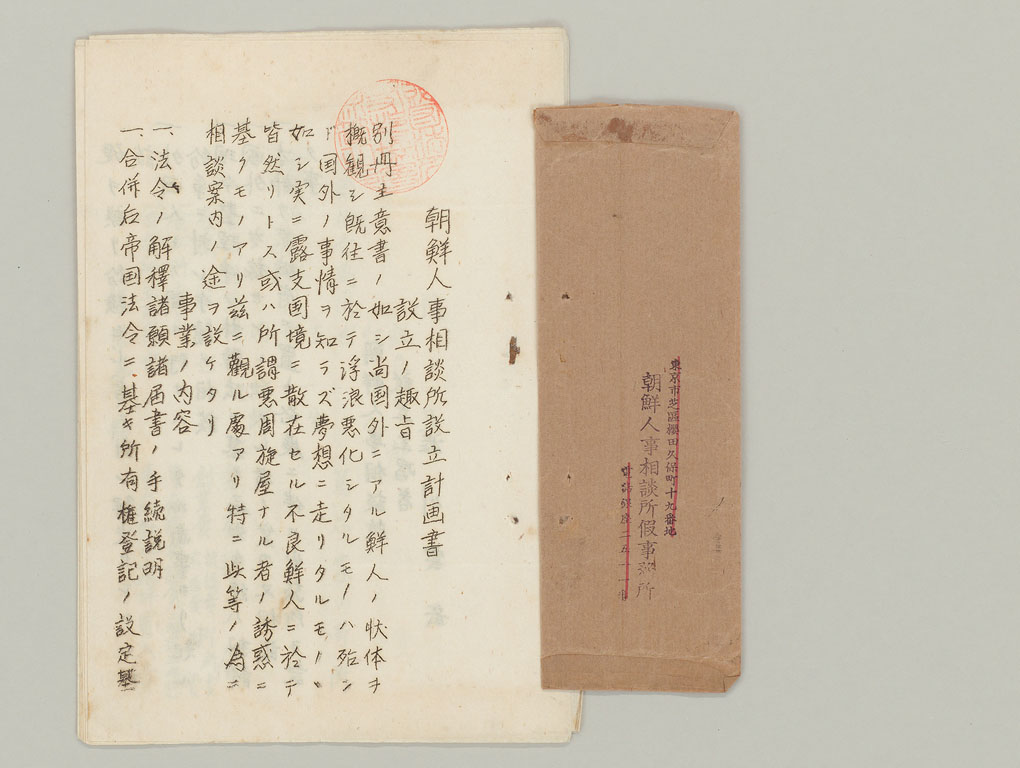 朝鮮人事相談所設立計画書
設立ノ趣旨
別冊主意書ノ如シ尚国外ニアル鮮人ノ状体ヲ
概観シ既往ニ於テ浮浪悪化シタルモノハ殆ン
ド国外ノ事情ヲ知ラズ夢想ニ走リタルモノヽ
如シ実ニ露支国境ニ散在セル不良鮮人ニ於テ
皆然リトス或ハ所謂悪周旋屋ナル者ノ誘惑ニ
基クモノアリ茲ニ觀ル處アリ特ニ此等ノ為ニ
相談案内ノ途ヲ設ケタリ
事業ノ内容
一、法令ノ解釋諸願諸届書ノ手続説明
一、合併后帝国法令ニ基キ所有権登記ノ設定基
東京市芝區櫻田久保町十九番地
朝鮮人事相談所假事務所
銀座二五一一番